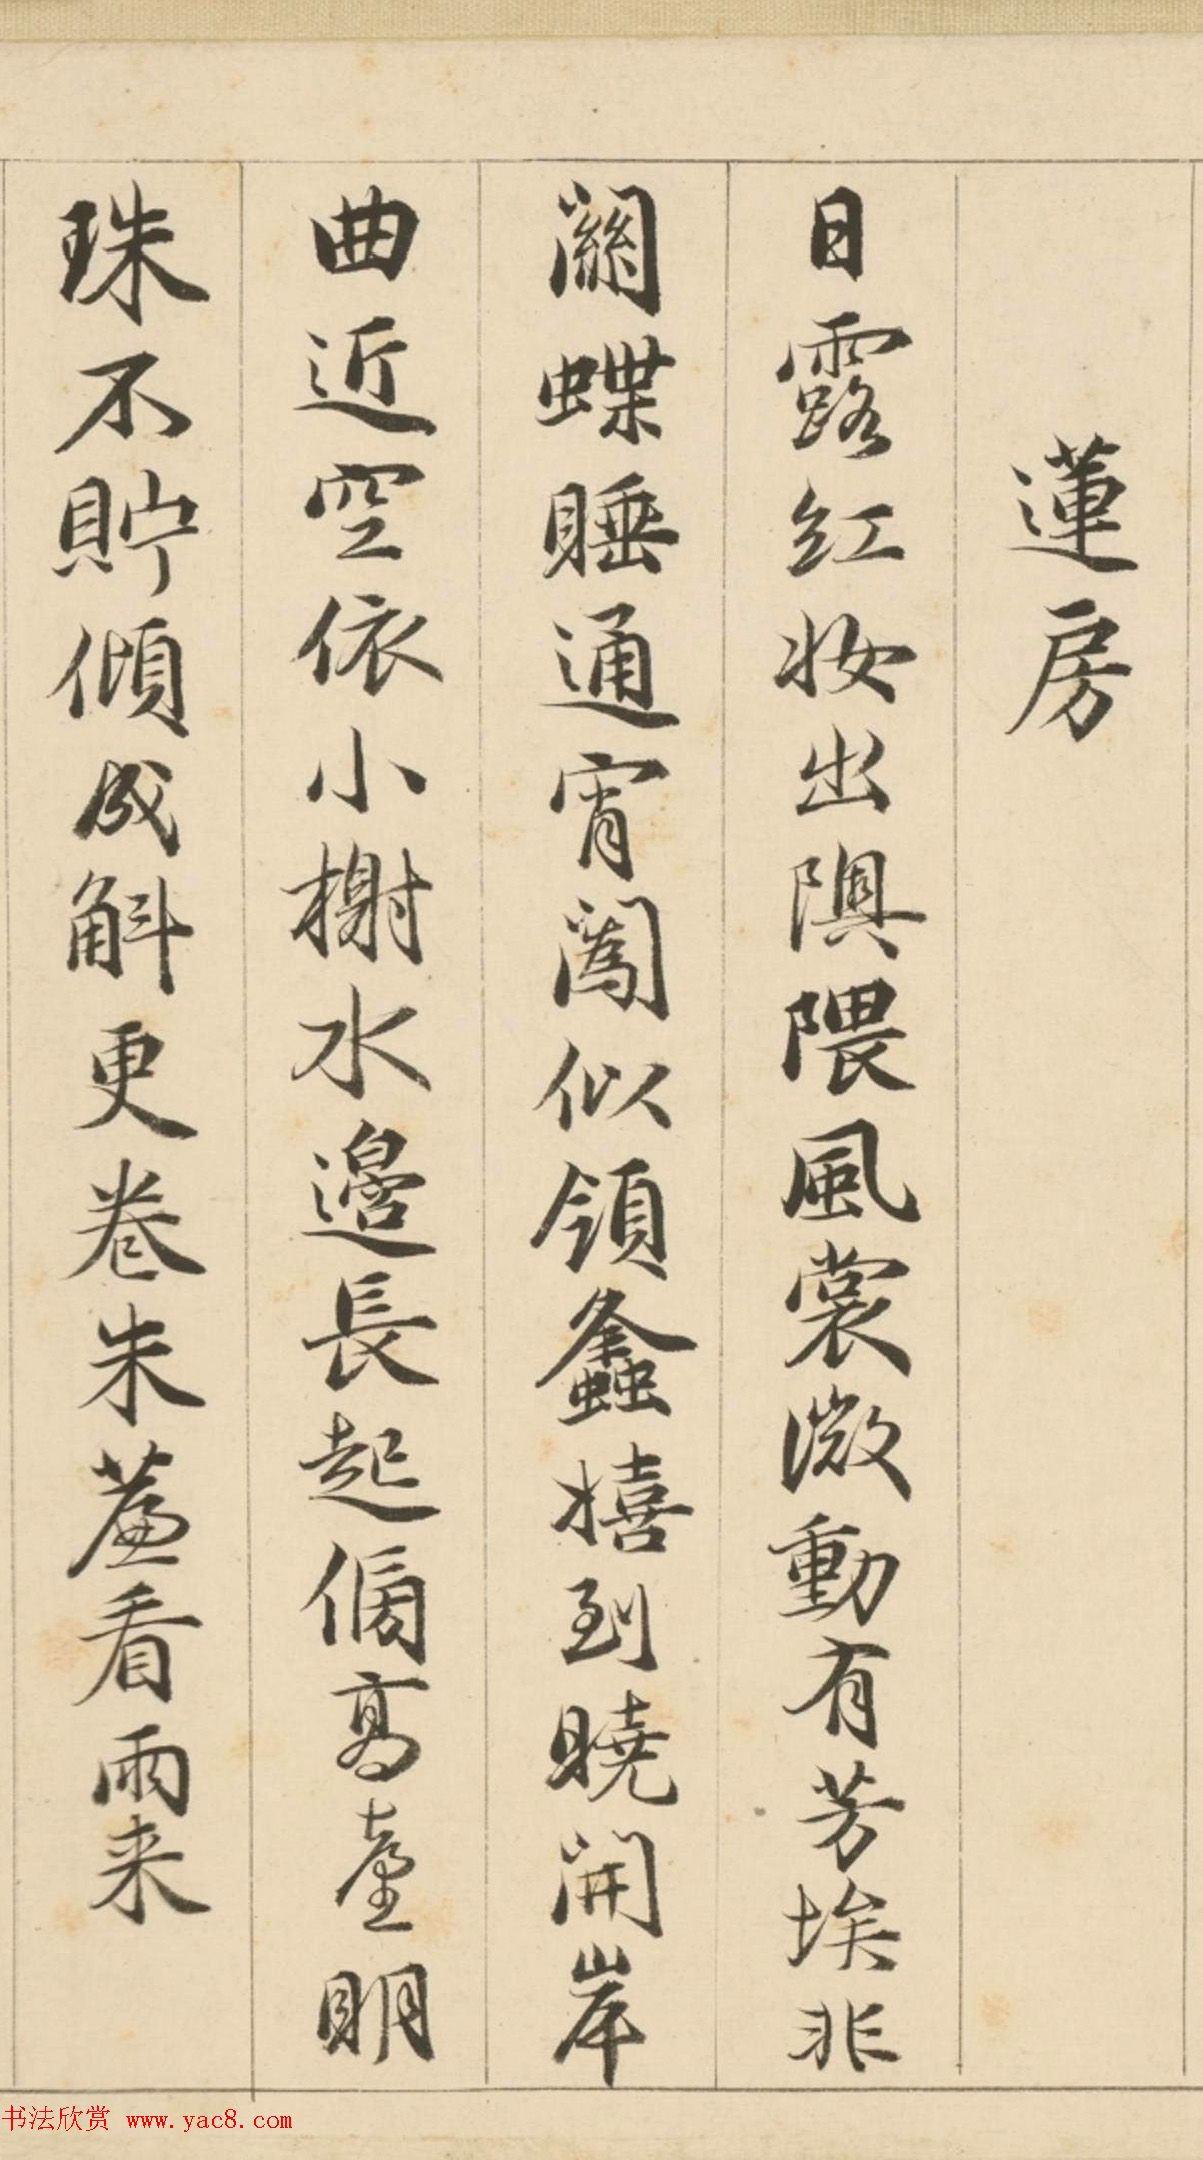 蓮房
日露紅妝出隩隈風裳微動有芳埃非
關蝶睡通宵闔似領蠭嬉到曉開岸
曲近空依小榭水邊長起傍高臺明
珠不貯傾成斛更卷朱簾看雨来
书法欣赏 www.yac8.com